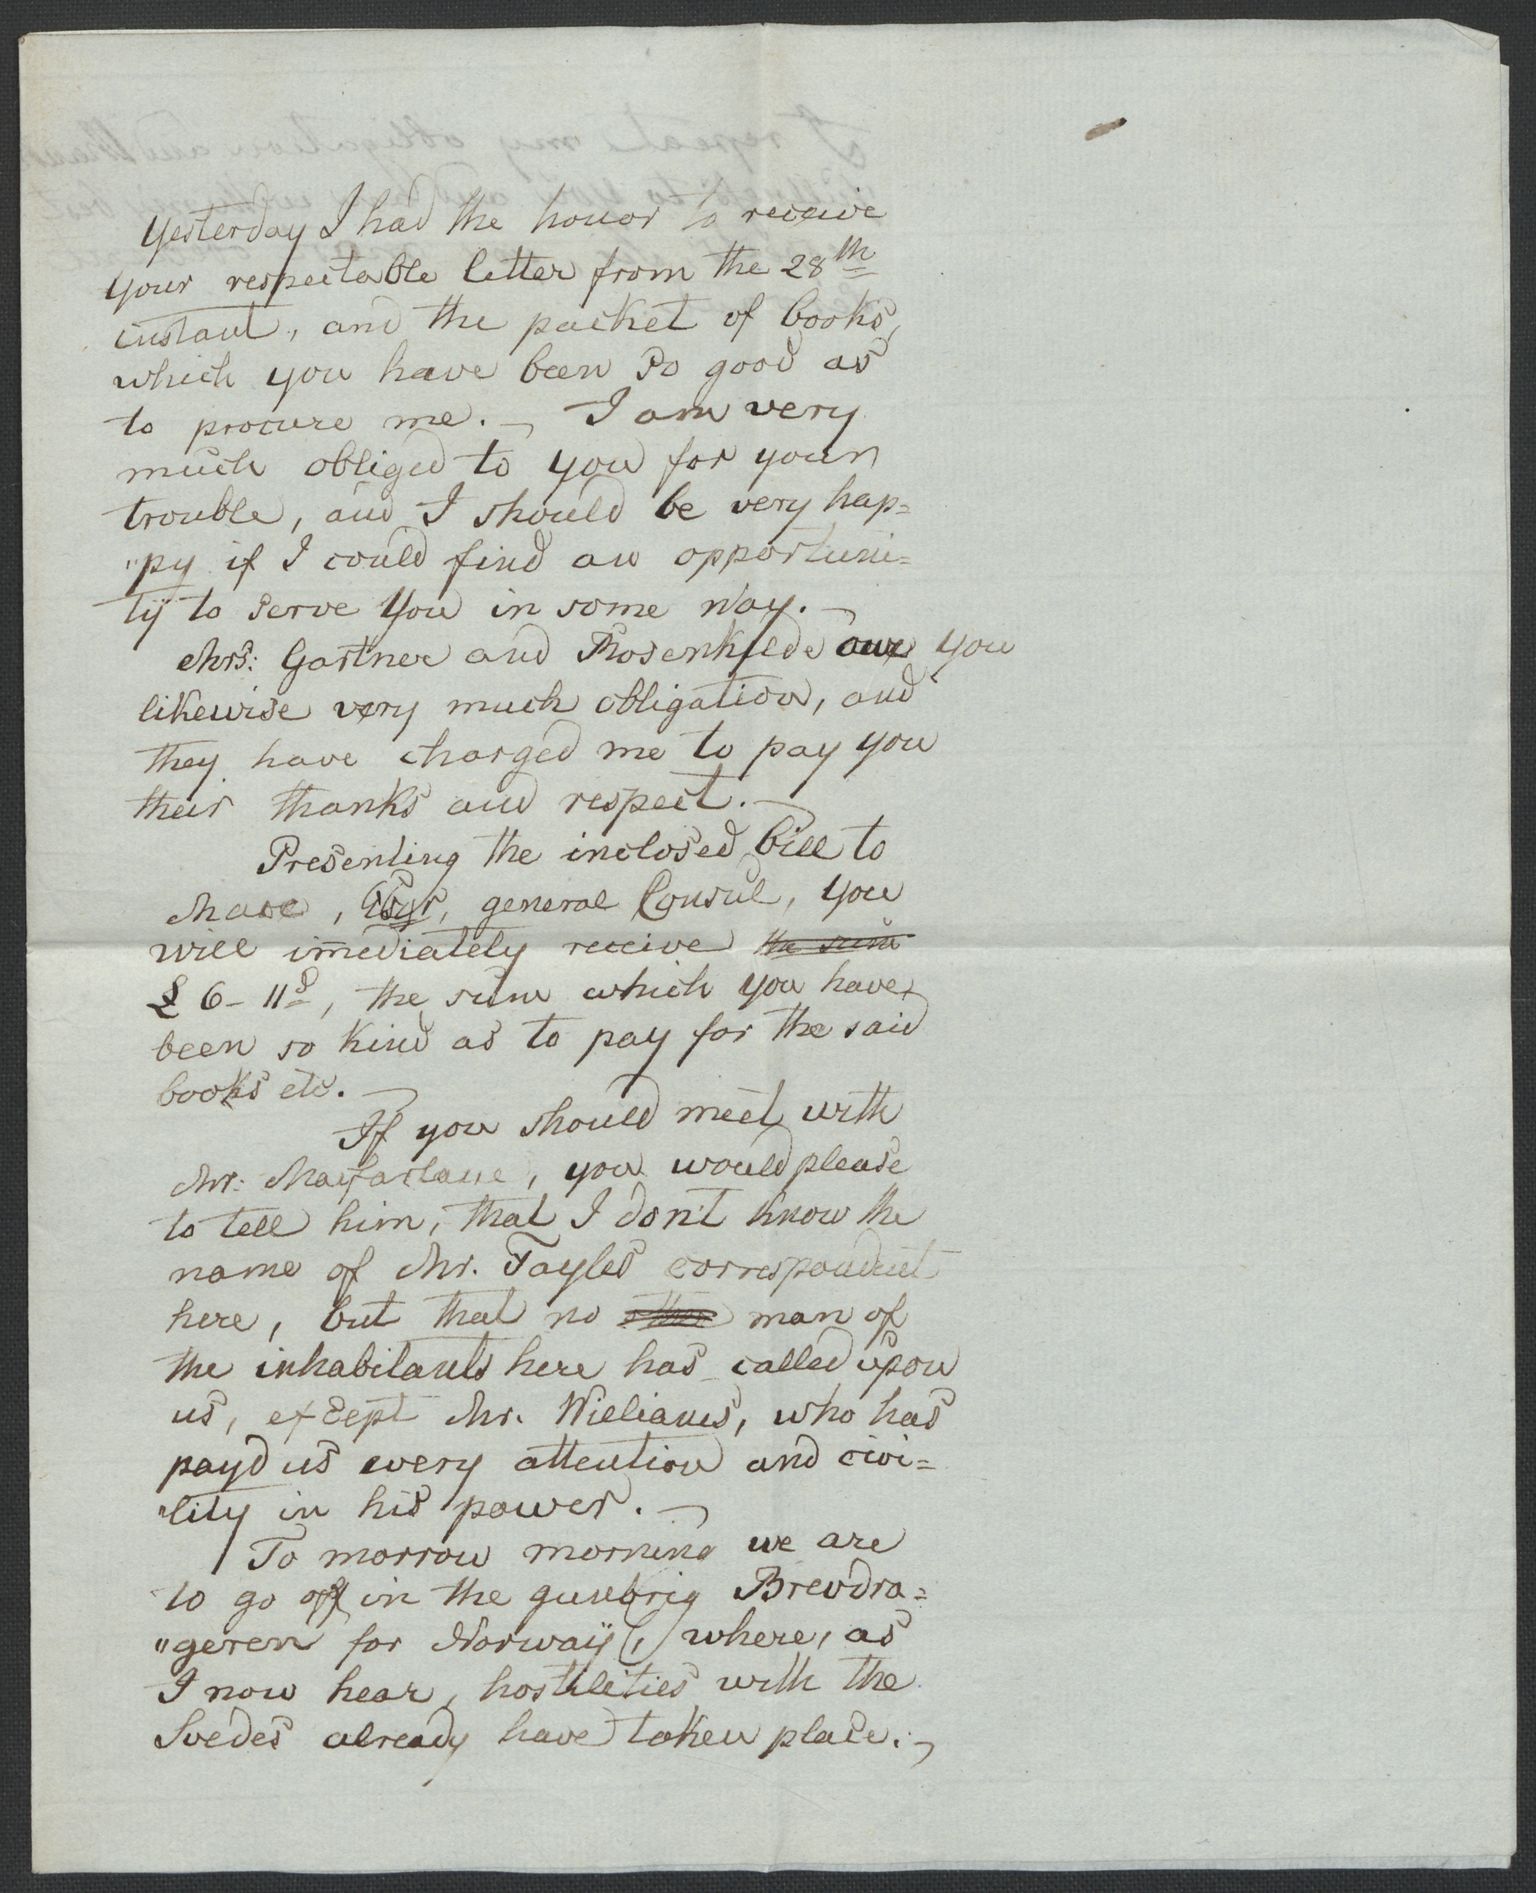 Yesterday I had the honor to receive
your respectable letter from the 28th
instant, and the packet of books,
which you have been so good as
to procure me. — I am very
much obliged to you for your
trouble, and I should be very hap=
"py if I could find an opportuni=
ty to serve you in some way. —
Mrs: Gartner and Rosenkilde owe you
likewise very much obligation, and
they have charged me to pay you
their thanks and respect. —
Presenting the inclosed bill to
, Esqr, general Consul, you
will imediately receive the sum
£ 6 - 11s, the sum which you have
been so kind as to pay for the said
books etc. —
If you should meet with
Mr: Macfarlane, you would please
to tell him, that I don't know the
name of Mr. Tayles correspondent
here, but that no other man of
the inhabitants here has called upon
us, except Mr. Williams, who has
payd us every attention and civi=
"lity in his power. —
To morrow morning we are
to go off in the gunbrig Brevdra=
"geren for Norway, where, as
I now hear, hostilities with the
Svedes already have taken place. —